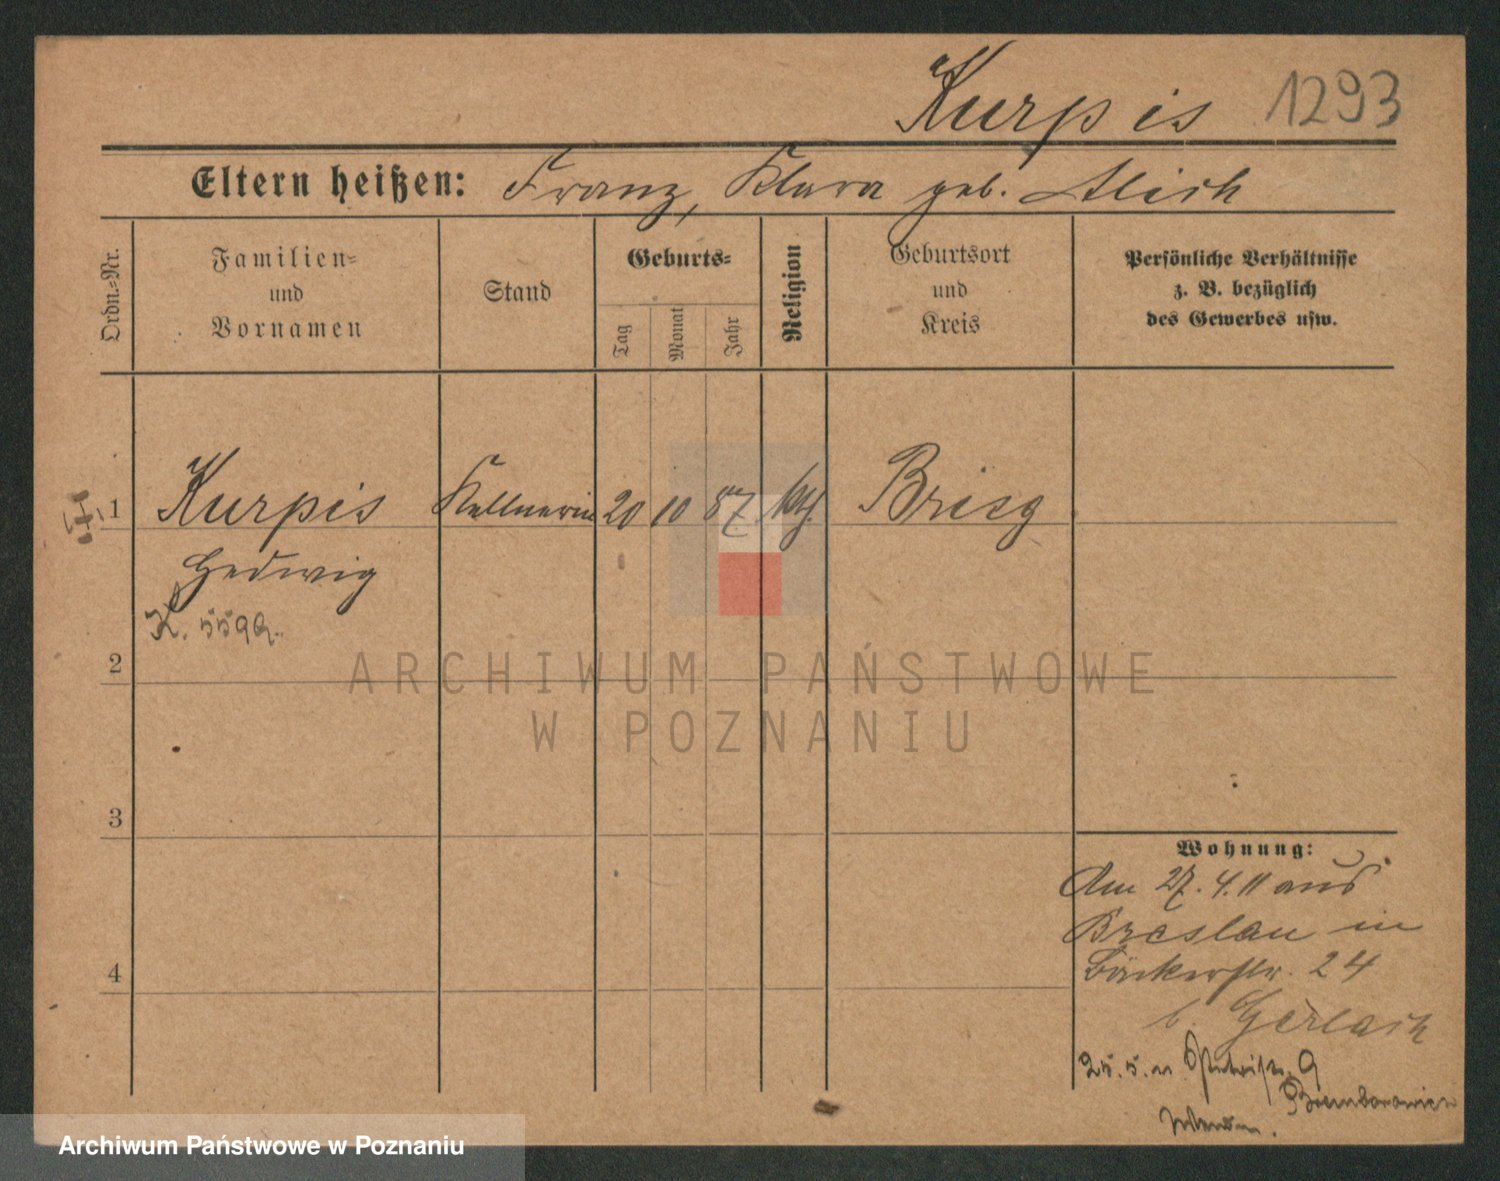 Kurpis 1293
Eltern heißen: Franz, Klara geb. Alich
Ordn.=Nr.
Familien=
und
Vornamen
Stand
Geburts=
Tag
Monat
Jahr
Religion
Geburtsort
und
Kreis
Persönliche Verhältnisse
z. B. bezüglich
des Gewerbes usw.
1 Kurpis Kellnerin 20 10 87 kth. Brieg
Hedwig
K.
2
3
4
Wohnung:
Am 27. 4. 11 aus
Breslau in
Bäckerstr. 24
b. Gerlach
25. 5. 11 9
ARCHIWUM PAŃSTWOWE
W POZNANIU
Archiwum Państwowe w Poznaniu